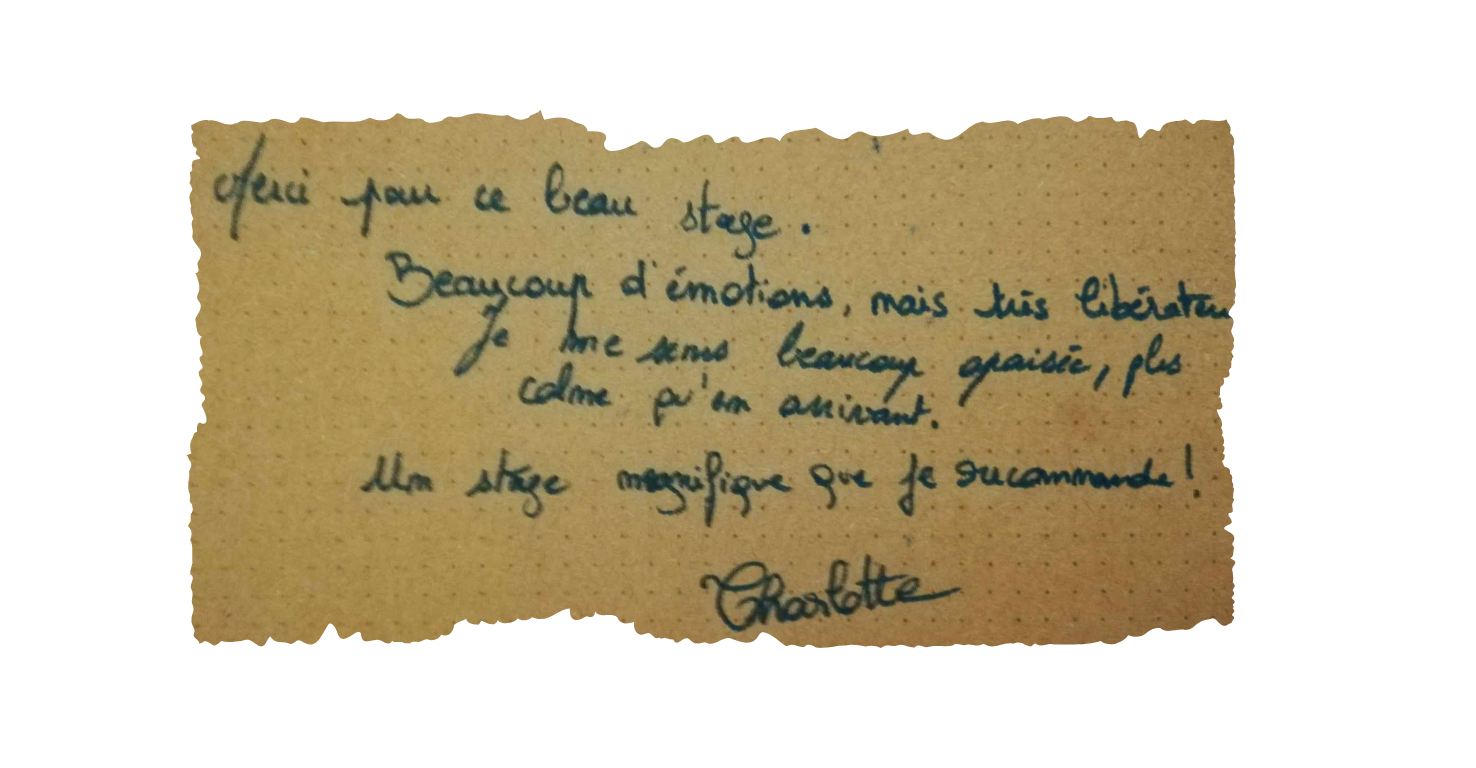 Merci pour ce beau stage.
Beaucoup d'émotions, mais très libérateur
Je me sens beaucoup apaisée, plus
calme qu'en arrivant.
Un stage magnifique que je recommande!
Charlotte